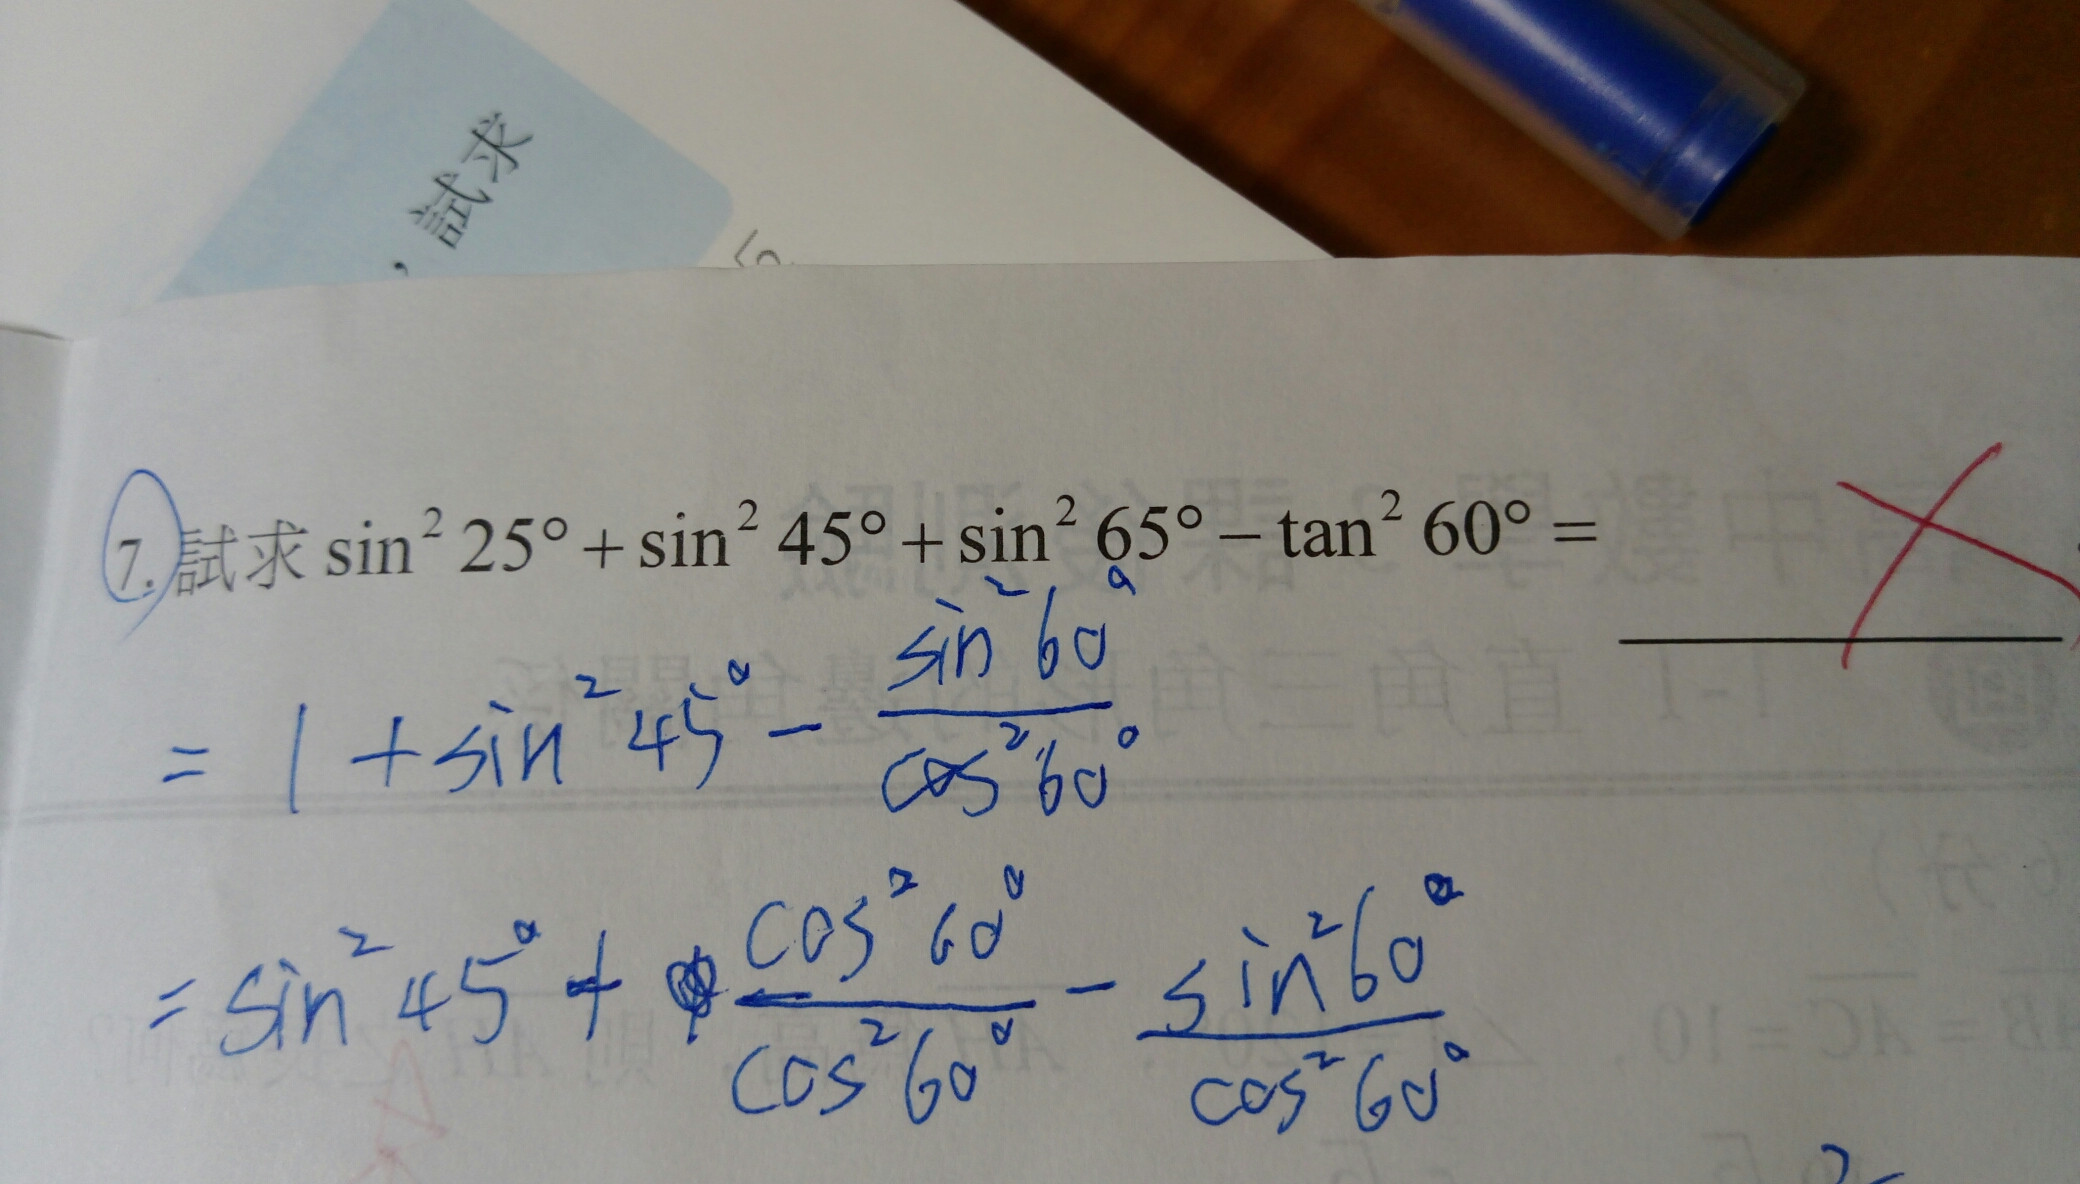 ，試求
7. 試求 sin² 25° + sin² 45° + sin² 65° – tan² 60° =
= 1 + sin² 45° - sin² 60° / cos² 60°
= sin² 45° + cos² 60° / cos² 60° - sin² 60° / cos² 60°